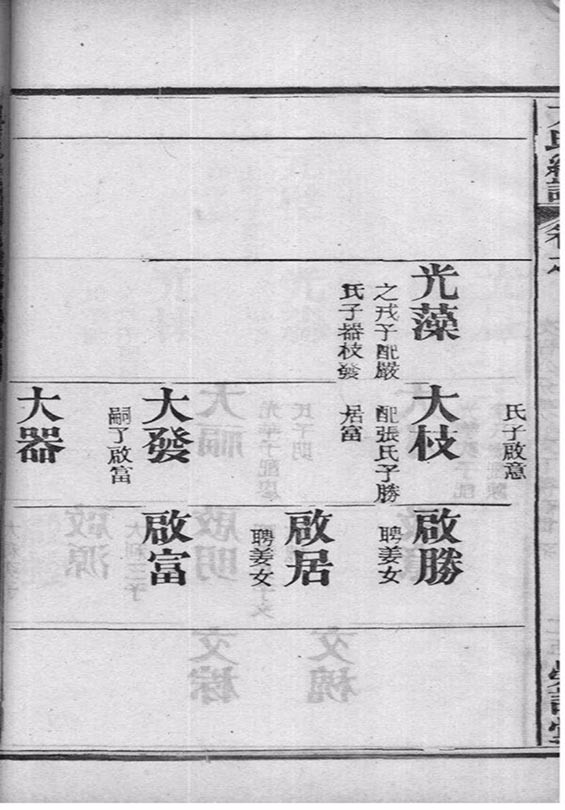 光藻
之戎子配嚴
氏子器枝發
氏子啟意
大枝
配張氏子勝
居富
大發
嗣子啟富
大器
啟勝
聘姜女
啟居
聘姜女
啟富